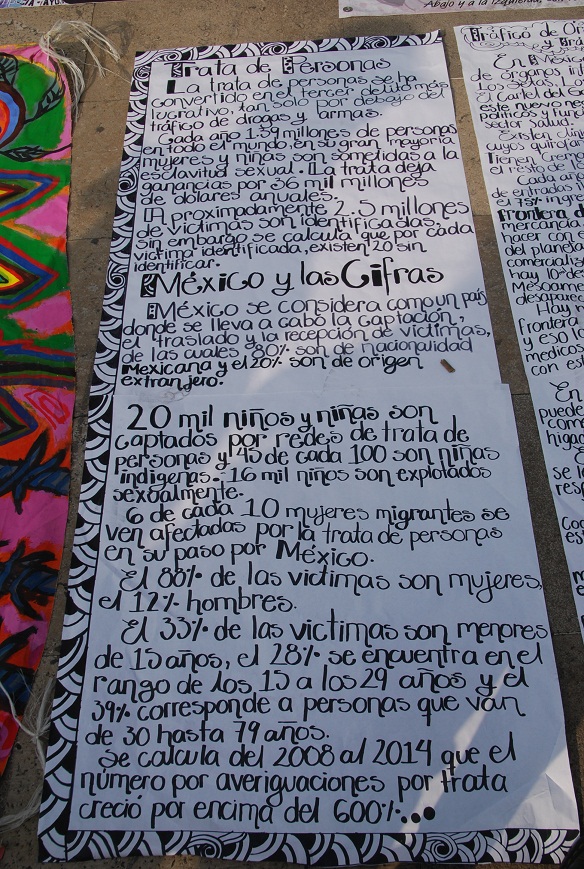 Abajo y a la Izquierda, con
Trata de Personas
La trata de personas se ha
convertido en el tercer delito más
lucrativo, tan solo por debajo del
tráfico de drogas y armas.
Cada año 1.39 millones de personas
en todo el mundo, en su gran mayoría
mujeres y niñas son sometidas a la
esclavitud sexual. La trata deja
ganancias por 36 mil millones
de dólares anuales.
Aproximadamente 2.5 millones
de víctimas son identificadas.
Sin embargo se calcula que por cada
víctima identificada, existen 20 sin
identificar.
México y las Cifras
México se considera como un país
donde se lleva a cabo la captación,
el traslado y la recepción de víctimas,
de las cuales 80% son de nacionalidad
Mexicana y el 20% son de origen
extranjero.
20 mil niños y niñas son
captados por redes de trata de
personas y 45 de cada 100 son niñas
indigenas. 16 mil niños son explotados
sexualmente.
6 de cada 10 mujeres migrantes se
ven afectadas por la trata de personas
en su paso por México.
El 88% de las victimas son mujeres,
el 12% hombres.
El 33% de las victimas son menores
de 15 años, el 28% se encuentra en el
rango de los 15 a los 29 años y el
39% corresponde a personas que van
de 30 hasta 79 años.
Se calcula del 2008 al 2014 que el
número por averiguaciones por trata
creció por encima del 600%...
Tráfico de Or
En México
de órganos
Los
el cartel del
este nuevo ne
políticos y fun
sector Salud.
Existen clín
cuyos quirófa
Tienen
el resto de
Cada año
de entradas
el 75% ingre
Frontera
mercancía
hacer con
del planeta
comerciali
hay 10
Mesoam
desapare
Hay
Frontera
y eso
medicos
con est
En
puede
como
higa
se
resp